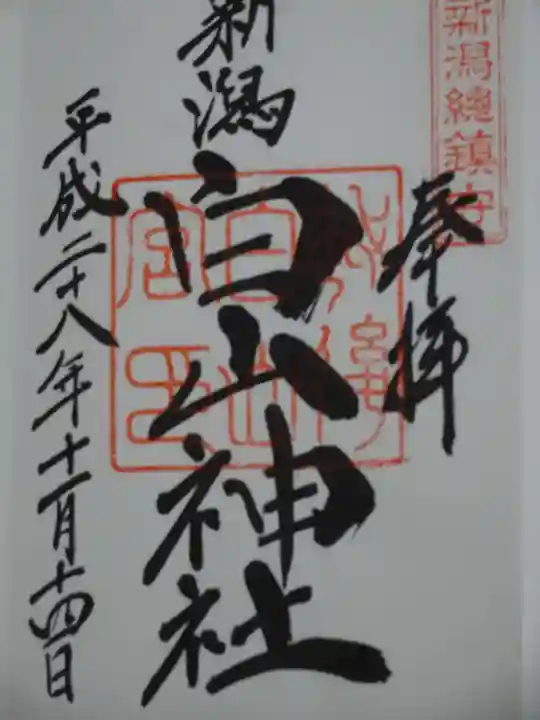 新潟總鎮守
奉拝
新潟
白山神社
平成二十八年十一月十四日